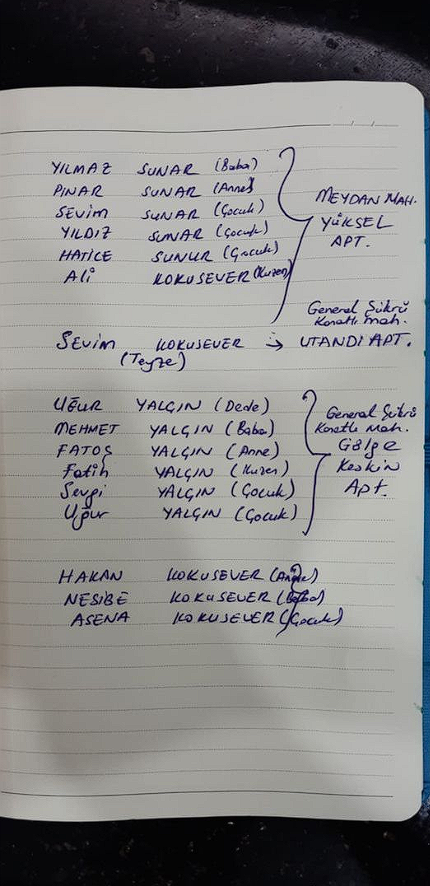 YILMAZ SUNAR (Baba)
PINAR SUNAR (Anne)
SEVİM SUNAR (Çocuk)
YILDIZ SUNAR (Çocuk)
HATİCE SUNUR (Çocuk)
ALİ KOKUSEVER (Kuzen)
MEYDAN MAH.
YÜKSEL
APT.
SEVİM KOKUSEVER → General Şükrü
Kanatlı mah.
UTANDI APT.
(Teyze)
UĞUR YALÇIN (Dede)
MEHMET YALÇIN (Baba)
FATOŞ YALÇIN (Anne)
Fatih YALÇIN (Kuzen)
Sevgi YALÇIN (Çocuk)
Uğur YALÇIN (Çocuk)
General Şükrü
Kanatlı mah.
Gölge
Keskin
Apt.
HAKAN KOKUSEVER
NESİBE KOKUSEVER
ASENA KOKUSEVER (Çocuk)